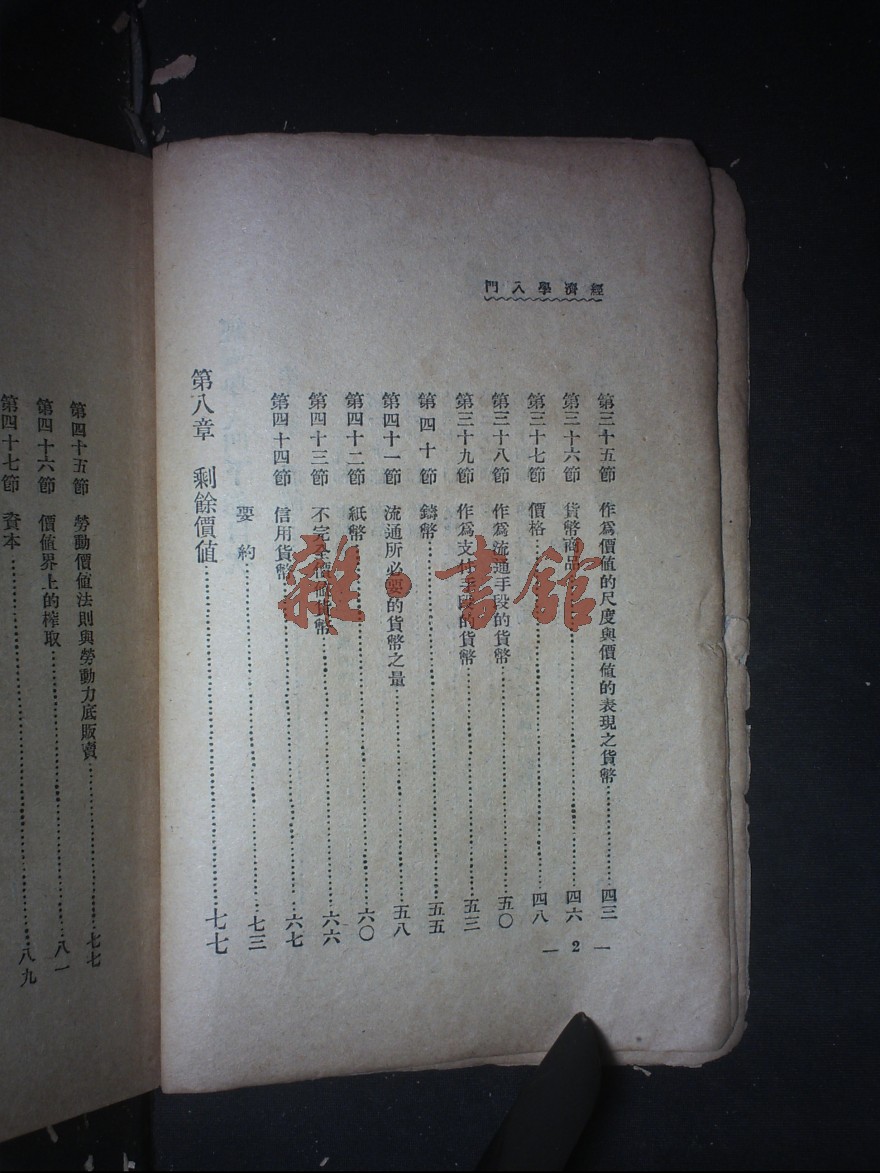 經濟學入門
第三十五節 作爲價値的尺度與價値的表現之貨幣……………四三
第三十六節 貨幣商品……………四六
第三十七節 價格……………四八
第三十八節 作爲流通手段的貨幣……………五〇
第三十九節 作爲支付手段的貨幣……………五三
第四十節 鑄幣……………五五
第四十一節 流通所必要的貨幣之量……………五八
第四十二節 紙幣……………六〇
第四十三節 不完全價値貨幣……………六六
第四十四節 信用貨幣……………六七
要約……………七三
第八章 剩餘價値……………七七
— 2 —
第四十五節 勞動價値法則與勞動力底販賣……………七七
第四十六節 價値界上的榨取……………八一
第四十七節 資本……………八九
雜·書館